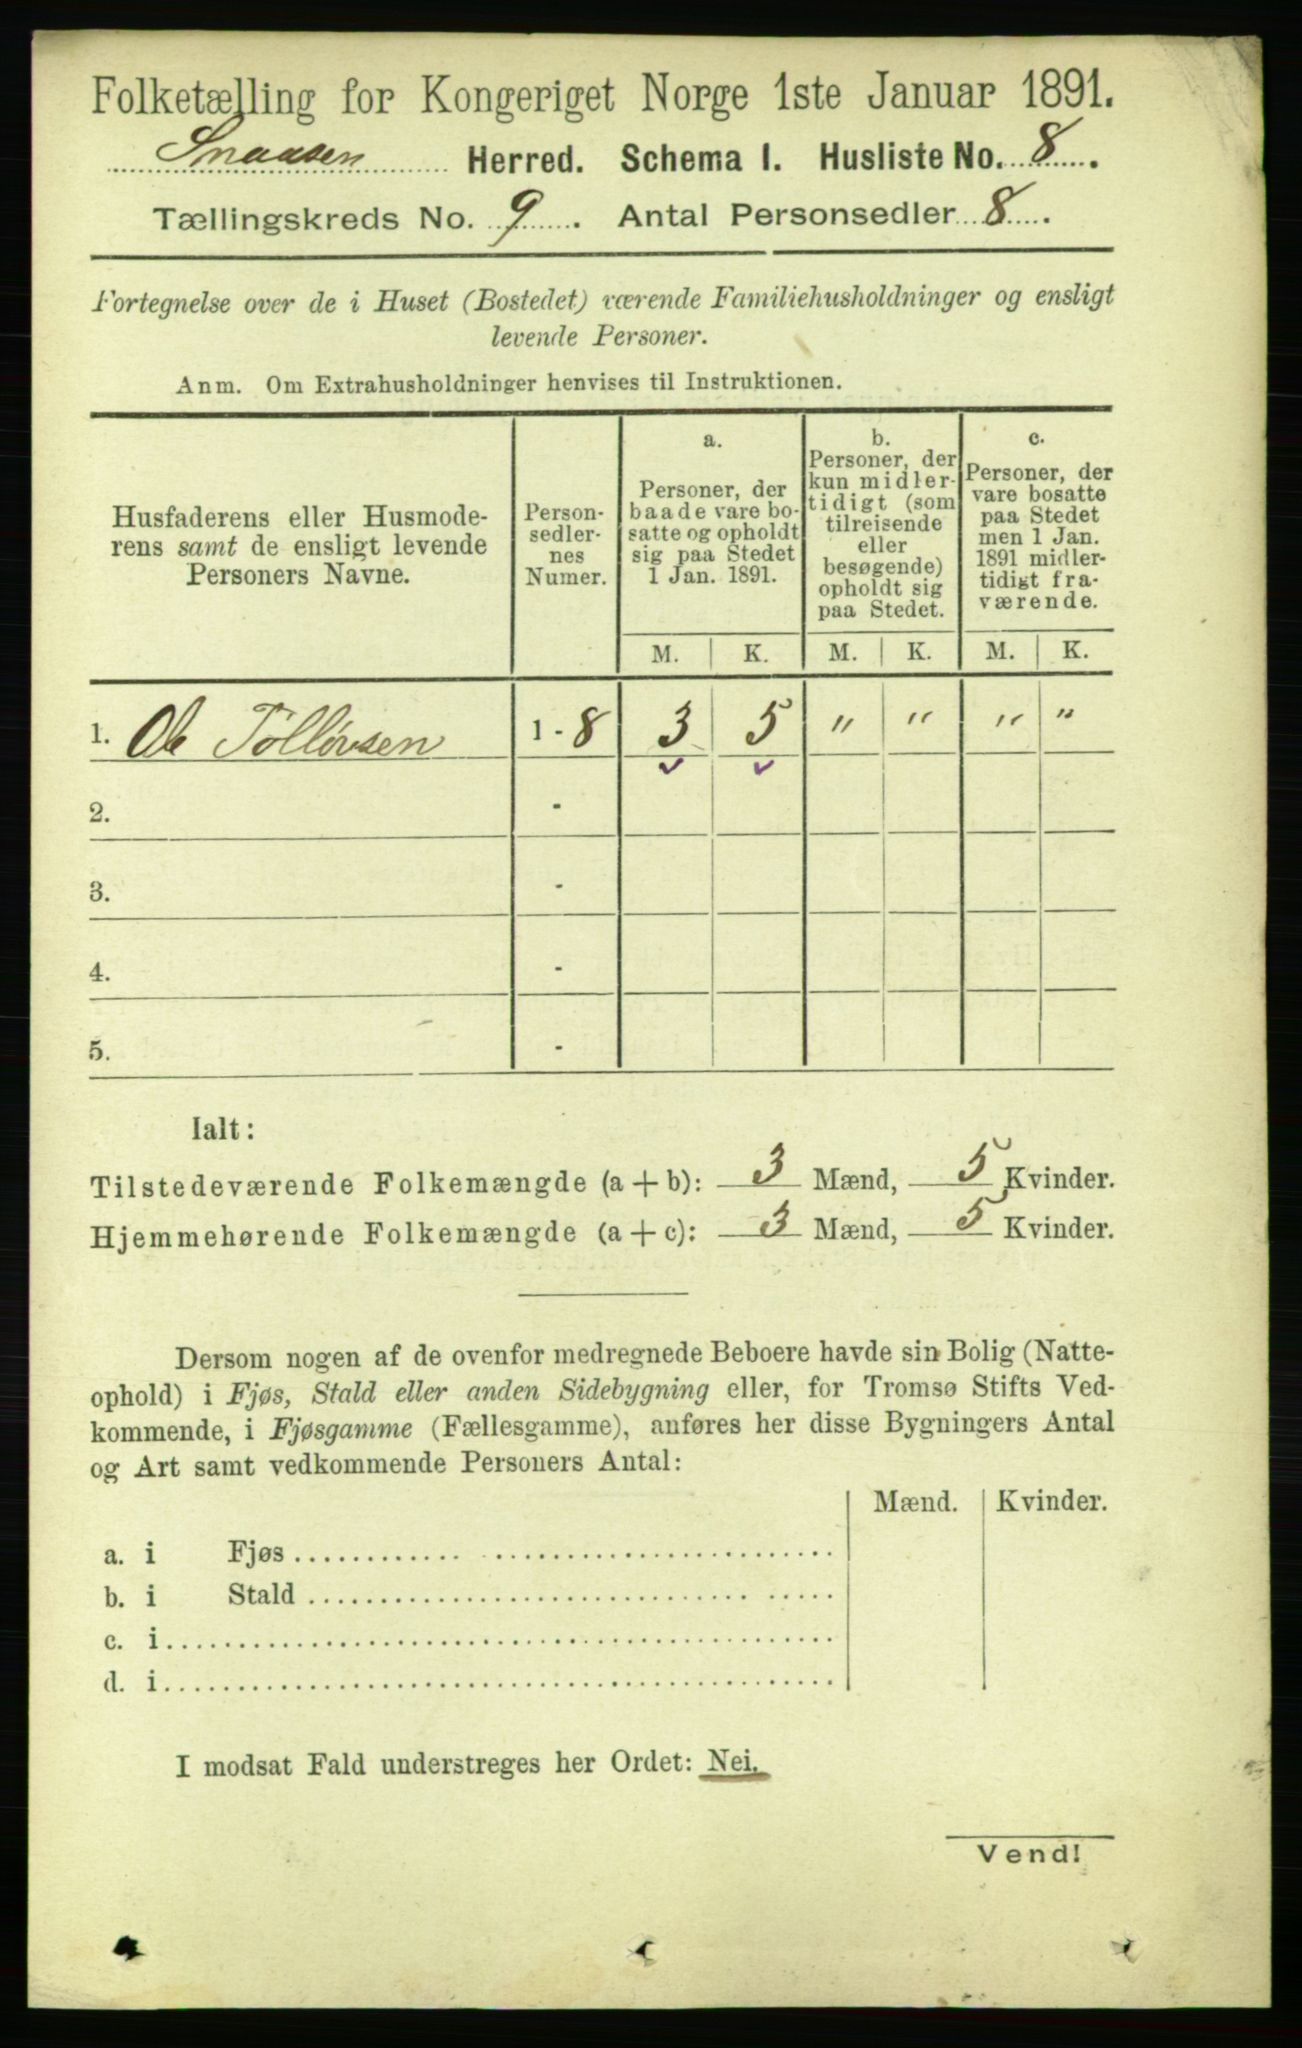 Folketælling for Kongeriget Norge 1ste Januar 1891.
Snaasen Herred. Schema I. Husliste No. 8.
Tællingskreds No. 9. Antal Personsedler 8.
Fortegnelse over de i Huset (Bostedet) værende Familiehusholdninger og ensligt
levende Personer.
Anm. Om Extrahusholdninger henvises til Instruktionen.
Husfaderens eller Husmode-
rens samt de ensligt levende
Personers Navne.
Person-
sedler-
nes
Numer.
a.
Personer, der
baade vare bo-
satte og opholdt
sig paa Stedet
1 Jan. 1891.
b.
Personer, der
kun midler-
tidigt (som
tilreisende
eller
besøgende)
opholdt sig
paa Stedet.
c.
Personer, der
vare bosatte
paa Stedet
men 1 Jan.
1891 midler-
tidigt fra-
værende.
M. K. M. K. M. K.
1. Ole Tollövsen 1 - 8 3 5 " " " "
2. -
3. -
4. -
5. -
Ialt:
Tilstedeværende Folkemængde (a + b): 3 Mænd, 5 Kvinder.
Hjemmehørende Folkemængde (a + c): 3 Mænd, 5 Kvinder.
Dersom nogen af de ovenfor medregnede Beboere havde sin Bolig (Natte-
ophold) i Fjøs, Stald eller anden Sidebygning eller, for Tromsø Stifts Ved-
kommende, i Fjøsgamme (Fællesgamme), anføres her disse Bygningers Antal
og Art samt vedkommende Personers Antal:
Mænd. Kvinder.
a. i Fjøs
b. i Stald
c. i
d. i
I modsat Fald understreges her Ordet: Nei.
Vend!